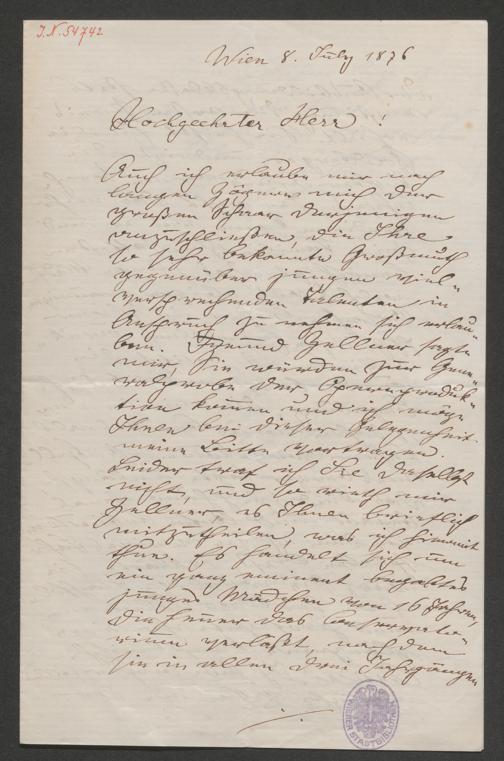 I.N. 54742
Wien 8. July 1876
Hochgeehrter Herr!
Auch ich erlaube mir nach
langem Zögern mich der
großen Schaar derjenigen
anzuschließen, die Ihre
so sehr bekannte Großmuth
gegenüber jungen viel-
versprechenden Talenten in
Anspruch zu nehmen sich erlau-
ben. Freund Zellner sagte
mir, Sie würden zur Gene-
ralprobe der Opernproduk-
tion kommen und ich möge
Ihnen bei dieser Gelegenheit
meine Bitte vortragen.
Leider traf ich Sie daselbst
nicht, und so rieth mir
Zellner, es Ihnen brieflich
mitzutheilen, was ich hiemit
thue. Es handelt sich um
ein ganz eminent begabtes
junges Mädchen von 16 Jahren,
die heuer das Conservato-
rium verläßt, nach dem
sie in allen drei Jahrgängen